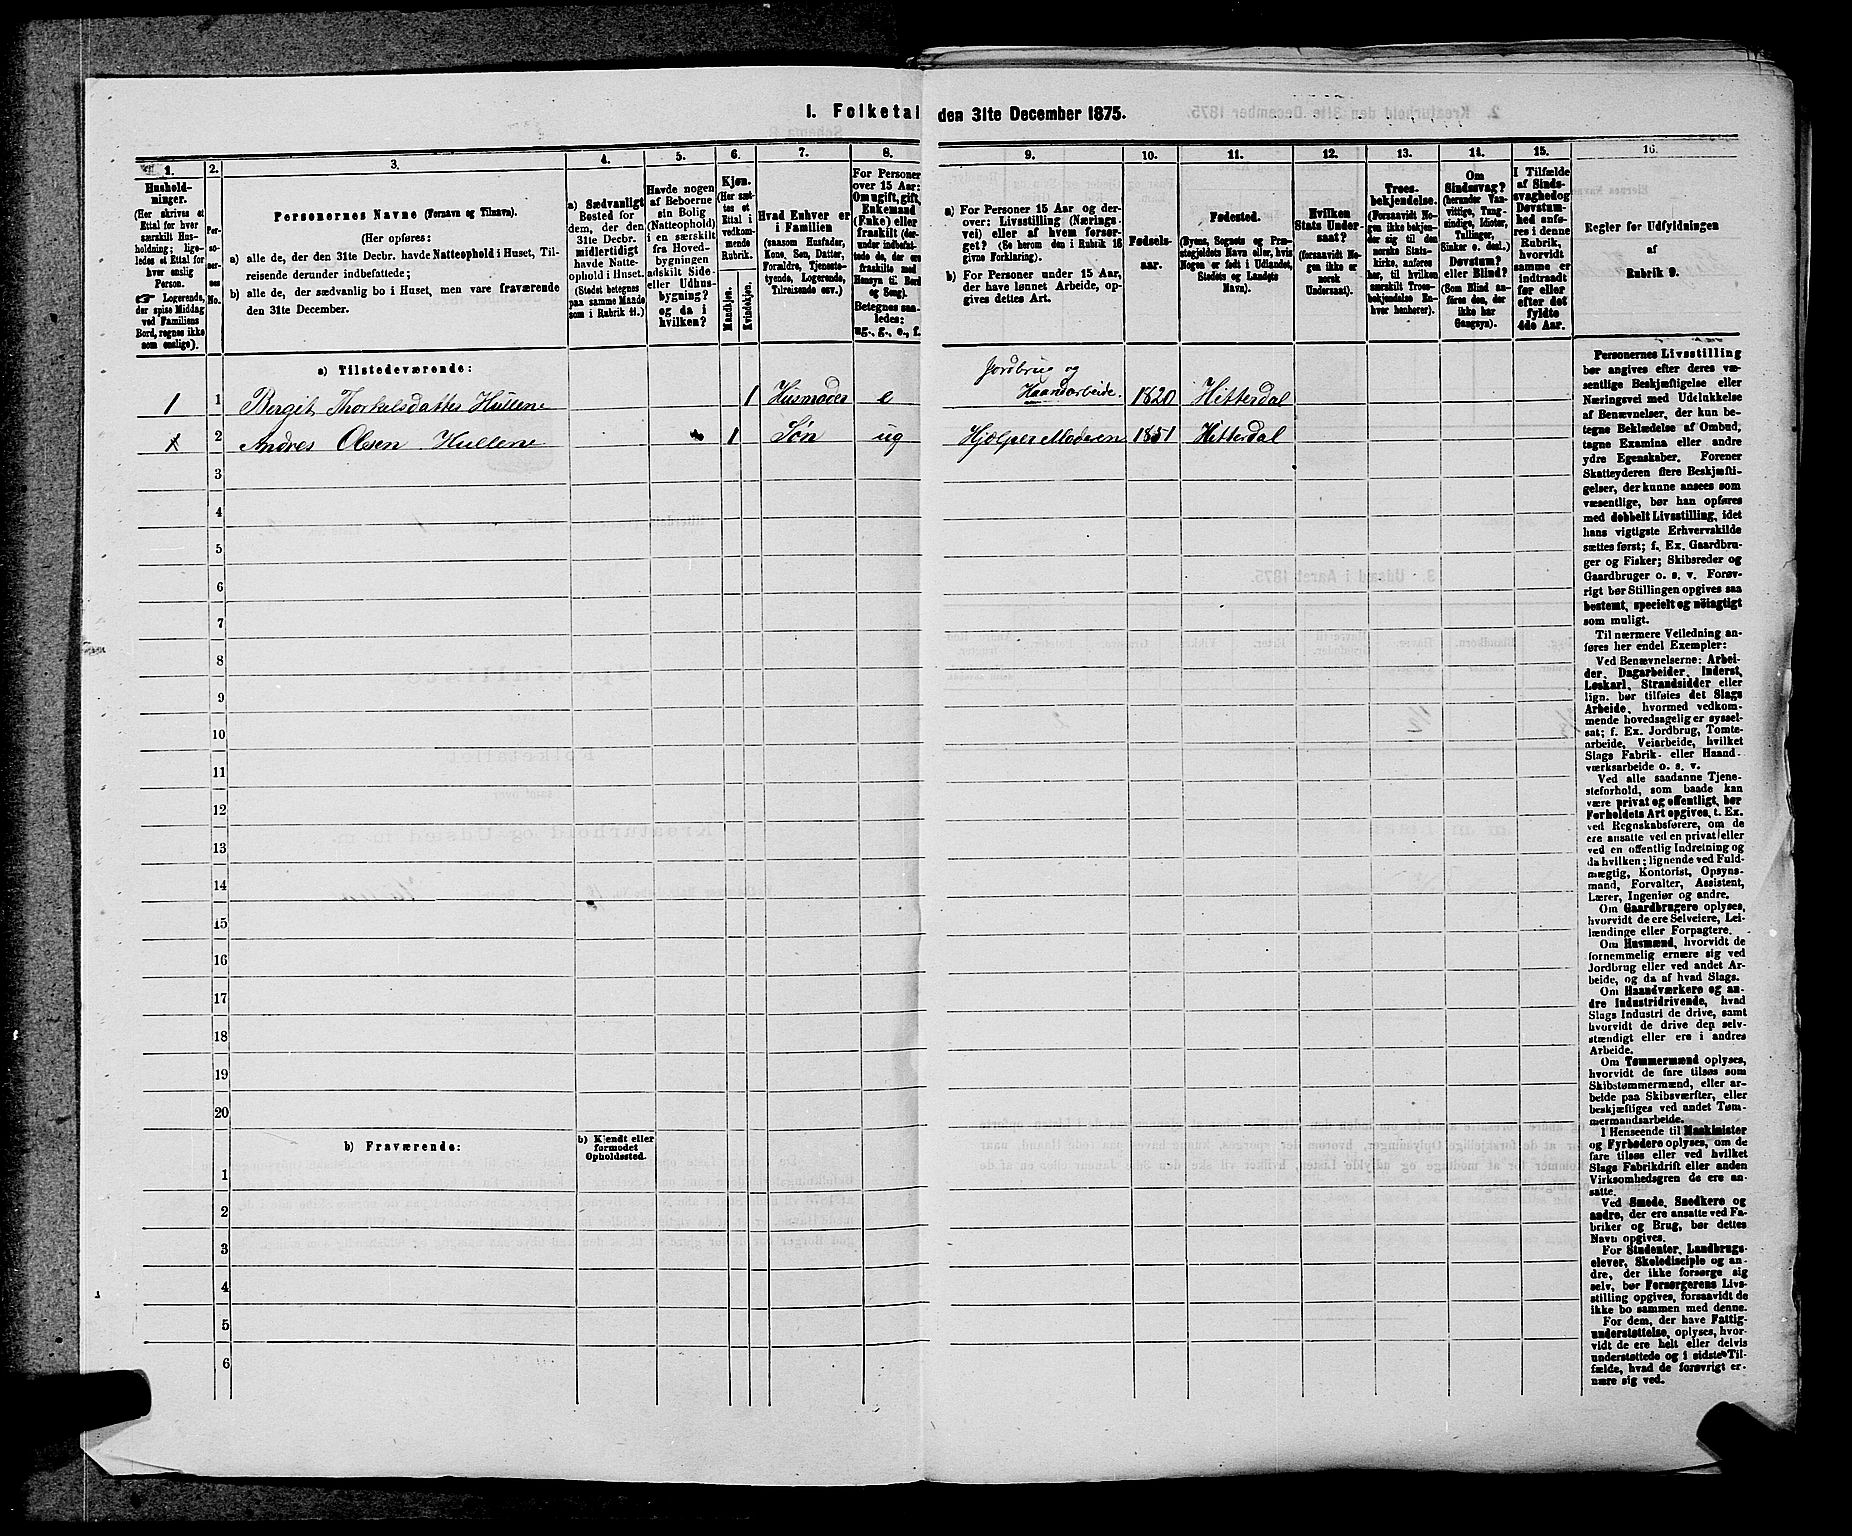 I. Folketal den 31te December 1875.
1.
Hushold-
ninger.
(Her skrives et
Ettal for hver
særskilt Hus-
holdning; lige-
ledes et Ettal for
hver enslig
Person.
☞ Logerende,
der spise Middag
ved Familiens
Bord, regnes ikke
som enslige).
2.
Per-
so-
ner-
nes
No.
3.
Personernes Navne (Fornavn og Tilnavn).
(Her opføres:
a) alle de, der den 31te Decbr. havde Natteophold i Huset, Til-
reisende derunder indbefattede;
b) alle de, der sædvanlig bo i Huset, men vare fraværende
den 31te December.
4.
a) Sædvanligt
Bosted for
dem, der den
31te Decbr.
midlertidigt
havde Natte-
ophold i Huset.
(Stedet betegnes
paa samme Maade
som i Rubrik 11.)
5.
Havde nogen
af Beboerne
sin Bolig
(Natteophold)
i en særskilt
fra Hoved-
bygningen
adskilt Side-
eller Udhus-
bygning?
og da i
hvilken?
6.
Kjøn.
(Her sæt-
tes et
Ettal i
vedkom-
mende
Rubrik.
Mandkjøn.
Kvindekjøn.
7.
Hvad Enhver er
i Familien
(saasom Husfader,
Kone, Søn, Datter,
Forældre, Tjeneste-
tyende, Logerende,
Tilreisende osv.)
8.
For Personer
over 15 Aar:
Om ugift, gift,
Enkemand
(Enke) eller
fraskilt (der-
under indbefat-
tede de, der ere
fraskilte med
Hensyn til Bord
og Seng).
Betegnes saa-
ledes:
ug., g., e., f.
9.
a) For Personer 15 Aar og der-
over: Livsstilling (Nærings-
vei) eller af hvem forsør-
get? (Se herom den i Rubrik 16
givne Forklaring).
b) For Personer under 15 Aar,
der have lønnet Arbeide, op-
gives dettes Art.
10.
Fødsels-
aar.
11.
Fødested.
(Byens, Sognets og Præ-
stegjeldets Navn eller, hvis
Nogen er født i Udlandet,
Stedets og Landets
Navn).
12.
Hvilken
Stats Under-
saat?
(forsaavidt No-
gen ikke er
norsk
Undersaat).
13.
Troes-
bekjendelse.
(Forsaavidt No-
gen ikke bekjen-
der sig til den
norske Stats-
kirke, anføres
her, til hvilken
særskilt Troes-
bekjendelse En-
hver henhører).
14.
Om
Sindssvag?
(herunder Van-
vittige, Tung-
sindige, Idioter,
Tullinger,
Sinker o. desl.)
Døvstum?
eller Blind?
(Som Blind an-
føres den, der
ikke har
Gangsyn).
15.
I Tilfælde
af Sinds-
svaghed og
Døvstum-
hed anfø-
res i denne
Rubrik,
hvorvidt
samme er
indtraadt
før eller
efter det
fyldte
4de Aar.
16.
Regler for Udfyldningen
af
Rubrik 9.
a) Tilstedeværende:
Jordbrug og
1 1 Bergit Thorkelsdatter Hullene 1 Husmoder e Haandarbeide. 1820 Hitterdal
1 2 Andres Olsen Hullene 1 Søn ug Hjælper Moderen 1851 Hitterdal
3
4
5
6
7
8
9
10
11
12
13
14
15
16
17
18
19
20
b) Fraværende:
b) Kjendt eller
formodet
Opholdssted.
1
2
3
4
5
6
Personernes Livsstilling
bør angives efter deres væ-
sentlige Beskjæftigelse eller
Næringsvei med Udelukkelse
af Benævnelser, der kun be-
tegne Beklædelse af Ombud,
tagne Examina eller andre
ydre Egenskaber. Forener
Skatteyderen flere Beskjæfti-
gelser, der kunne ansees som
væsentlige, bør han opføres
med dobbelt Livsstilling, idet
hans vigtigste Erhvervskilde
sættes først; f. Ex. Gaardbru-
ger og Fisker; Skibsreder og
Gaardbruger o. s. v. Forøv-
rigt bør Stillingen opgives saa
bestemt, specielt og nöiagtigt
som muligt.
Til nærmere Veiledning an-
føres her endel Exempler:
Ved Benævnelserne: Arbei-
der, Dagarbeider, Inderst,
Løskarl, Strandsidder eller
lign. bør tilføies det Slags
Arbeide, hvormed vedkom-
mende hovedsagelig er syssel-
sat; f. Ex. Jordbrug, Tomte-
arbeide, Veiarbeide, hvilket
Slags Fabrik- eller Haand-
værksarbeide o. s. v.
Ved alle saadanne Tjene-
steforhold, som baade kan
være privat og offentligt, bør
Forholdets Art opgives, t. Ex.
ved Regnskabsførere, om de
ere ansatte ved en privat eller
ved en offentlig Indretning og
da hvilken; lignende ved Fuld-
mægtig, Kontorist, Opsyns-
mand, Forvalter, Assistent,
Lærer, Ingeniør og andre.
Om Gaardbrugere oplyses,
hvorvidt de ere Selveiere, Lei-
lændinge eller Forpagtere.
Om Husmænd, hvorvidt de
fornemmelig ernære sig ved
Jordbrug eller ved andet Ar-
beide, og da af hvad Slags.
Om Haandværkere og an-
dre Industridrivende, hvad
Slags Industri de drive, samt
hvorvidt de drive den selv-
stændigt eller ere i andres
Arbeide.
Om Tømmermænd oplyses,
hvorvidt de fare tilsøs som
Skibstømmermænd, eller ar-
beide paa Skibsværfter, eller
beskjæftiges ved andet Tøm-
mermandsarbeide.
I Henseende til Maskinister
og Fyrbødere oplyses, om de
fare tilsøs eller ved hvilket
Slags Fabrikdrift eller anden
Virksomhedsgren de ere an-
satte.
Ved Smede, Snedkere og
andre, der ere ansatte ved Fa-
briker og Brug, bør dettes
Navn opgives.
For Studenter, Landbrugs-
elever, Skoledisciple og an-
dre, der ikke forsørge sig
selv, bør Forsørgerens Livs-
stilling opgives, forsaavidt de
ikke bo sammen med denne.
For dem, der have Fattig-
understøttelse, oplyses, hvor-
vidt de ere helt eller delvis
understøttede og i sidste Til-
fælde, hvad de forøvrigt er-
nære sig ved.